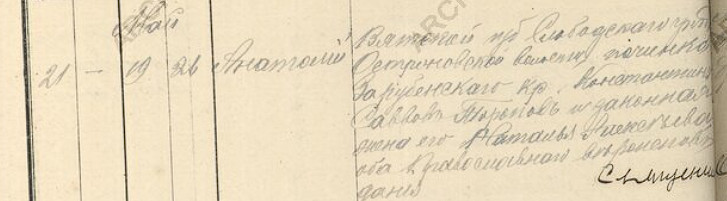 Май
21 — 19 26 Анатолій
Вятской губ Слободского уѣзда
Островской волости починка
Зарубенского кр. Константинъ
Саввовъ Тороповъ и законная
жена его Наталья Алексѣева
оба Православнаго вѣроисповѣ
данія
Священникъ